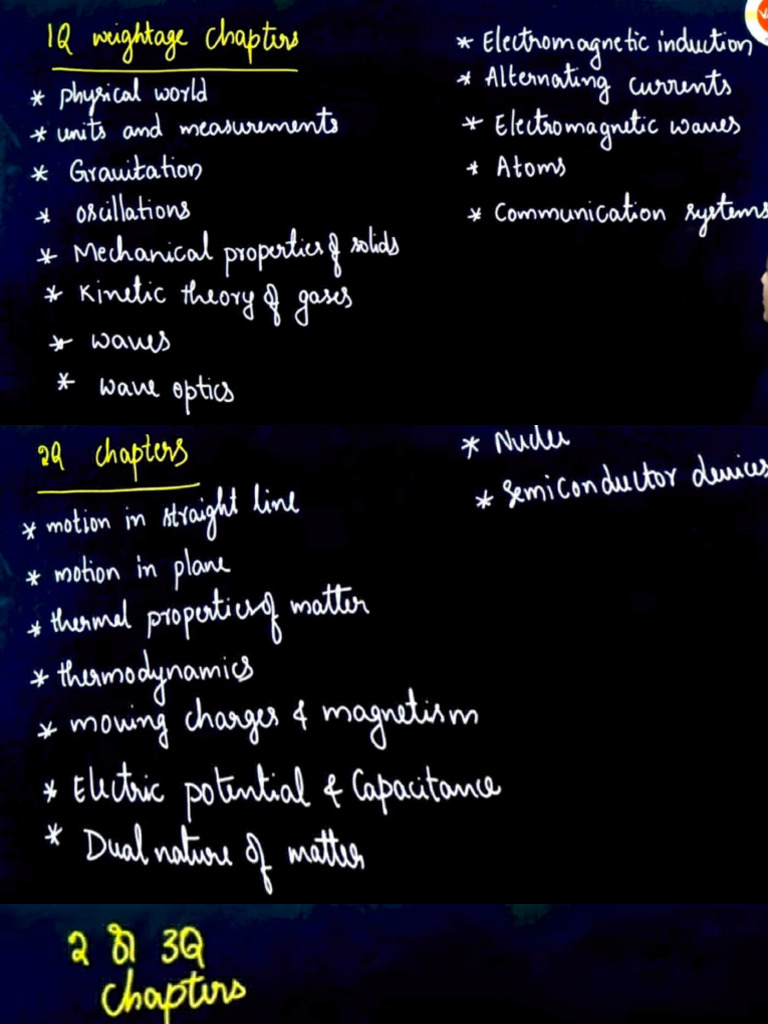 1Q weightage chapters
* physical world
* units and measurements
* Gravitation
* oscillations
* Mechanical properties of solids
* Kinetic theory of gases
* waves
* wave optics
* Electromagnetic induction
* Alternating currents
* Electromagnetic waves
* Atoms
* Communication systems
2Q chapters
* motion in straight line
* motion in plane
* thermal properties of matter
* thermodynamics
* moving charges & magnetism
* Electric potential & Capacitance
* Dual nature of matter
* Nuclei
* Semiconductor devices
2 or 3Q
chapters